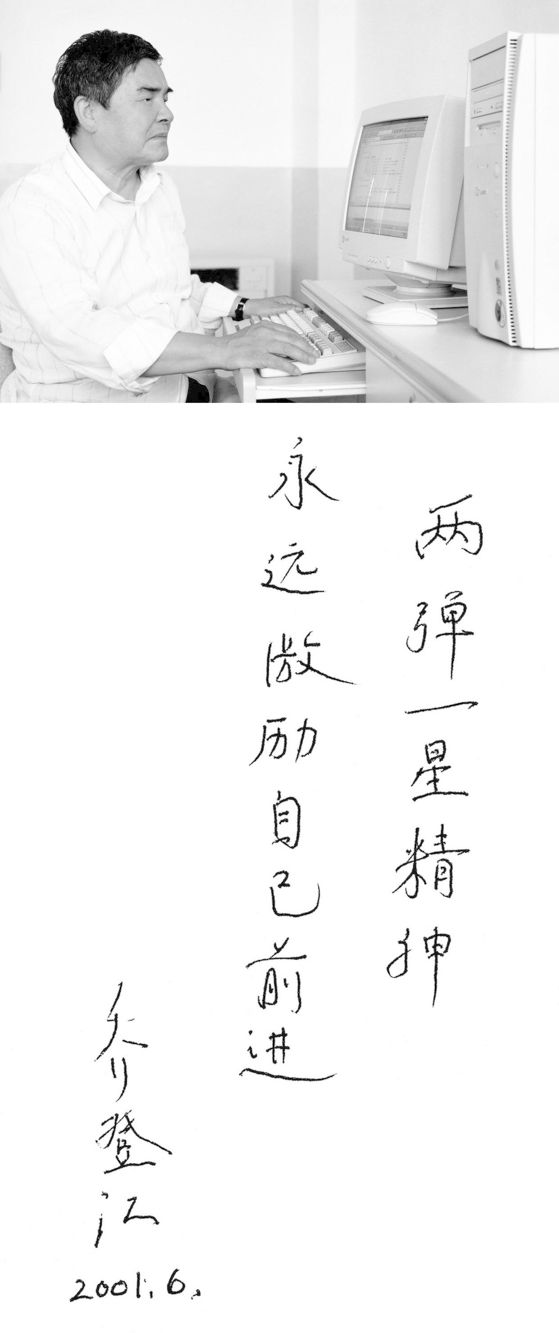 两弹一星精神
永远激励自己前进
乔登江
2001.6.